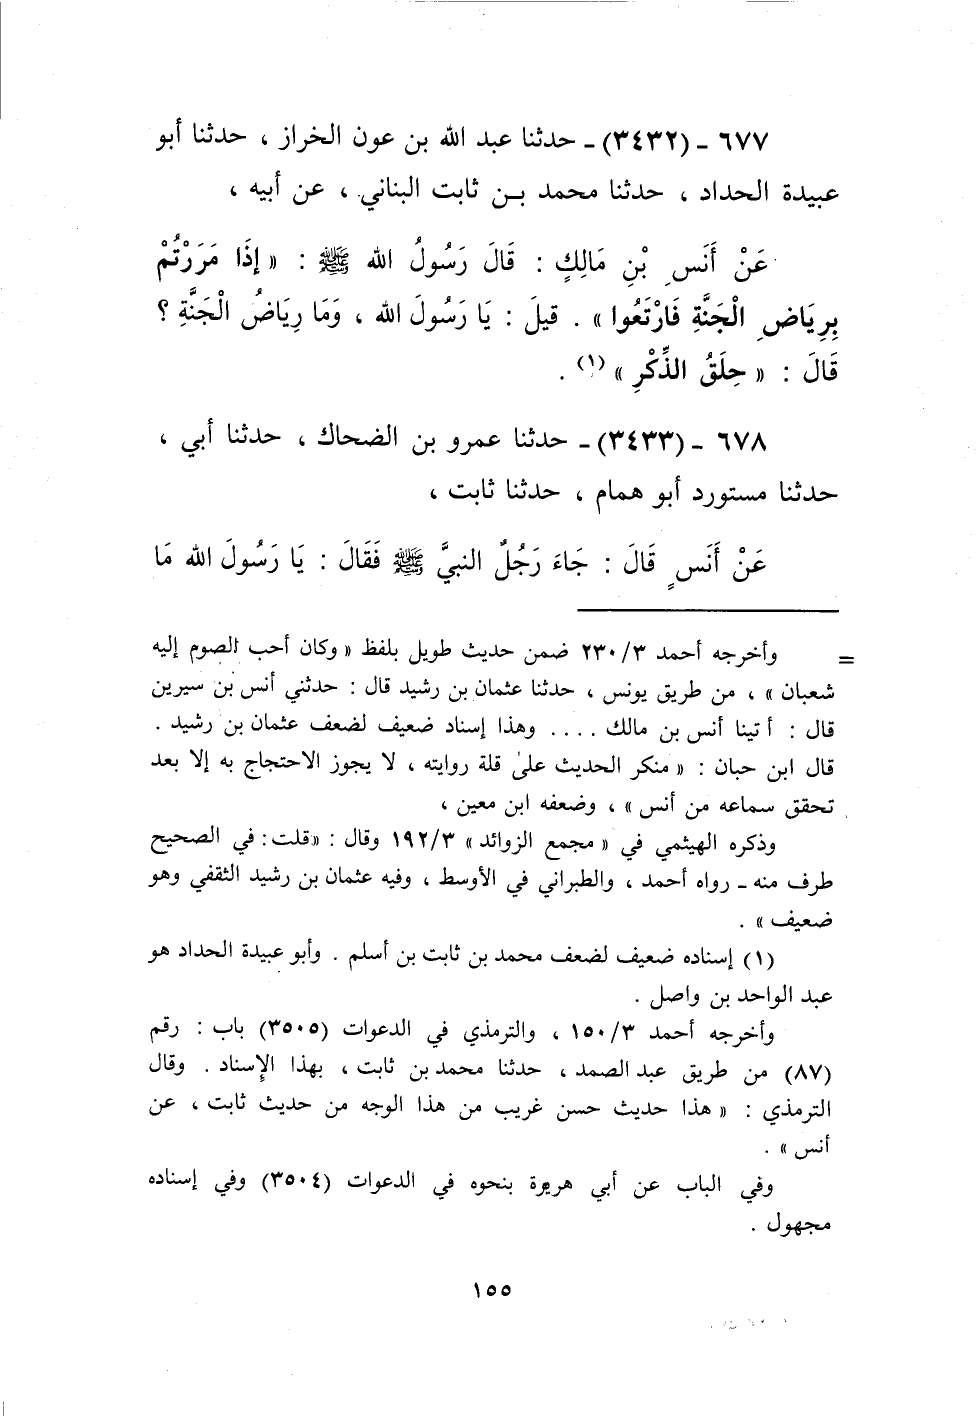 ٦٧٧ - (٣٤٣٢) - حدثنا عبد الله بن عون الخراز ، حدثنا أبو
عبيدة الحداد ، حدثنا محمد بن ثابت البناني ، عن أبيه ،
عَنْ أَنَسِ بْنِ مَالِكٍ : قَالَ رَسُولُ الله ﷺ : « إِذَا مَرَرْتُمْ
بِرِيَاضِ الْجَنَّةِ فَارْتَعُوا » . قيلَ : يَا رَسُولَ الله ، وَمَا رِيَاضُ الْجَنَّةِ ؟
قَالَ : « حِلَقُ الذِّكْرِ » (١) .
٦٧٨ - (٣٤٣٣) - حدثنا عمرو بن الضحاك ، حدثنا أبي ،
حدثنا مستورد أبو همام ، حدثنا ثابت ،
عَنْ أَنَسٍ قَالَ : جَاءَ رَجُلٌ النبيَّ ﷺ فَقَالَ : يَا رَسُولَ الله مَا
= وأخرجه أحمد ٢٣٠/٣ ضمن حديث طويل بلفظ « وكان أحب الصوم إليه
شعبان » ، من طريق يونس ، حدثنا عثمان بن رشيد قال : حدثني أنس بن سيرين
قال : أتينا أنس بن مالك .... وهذا إسناد ضعيف لضعف عثمان بن رشيد .
قال ابن حبان : « منكر الحديث على قلة روايته ، لا يجوز الاحتجاج به إلا بعد
تحقق سماعه من أنس » ، وضعفه ابن معين ،
وذكره الهيثمي في « مجمع الزوائد » ١٩٢/٣ وقال : « قلت : في الصحيح
طرف منه - رواه أحمد ، والطبراني في الأوسط ، وفيه عثمان بن رشيد الثقفي وهو
ضعيف » .
(١) إسناده ضعيف لضعف محمد بن ثابت بن أسلم . وأبو عبيدة الحداد هو
عبد الواحد بن واصل .
وأخرجه أحمد ١٥٠/٣ ، والترمذي في الدعوات (٣٥٠٥) باب : رقم
(٨٧) من طريق عبد الصمد ، حدثنا محمد بن ثابت ، بهذا الإسناد . وقال
الترمذي : « هذا حديث حسن غريب من هذا الوجه من حديث ثابت ، عن
أنس » .
وفي الباب عن أبي هريرة بنحوه في الدعوات (٣٥٠٤) وفي إسناده
مجهول .
١٥٥